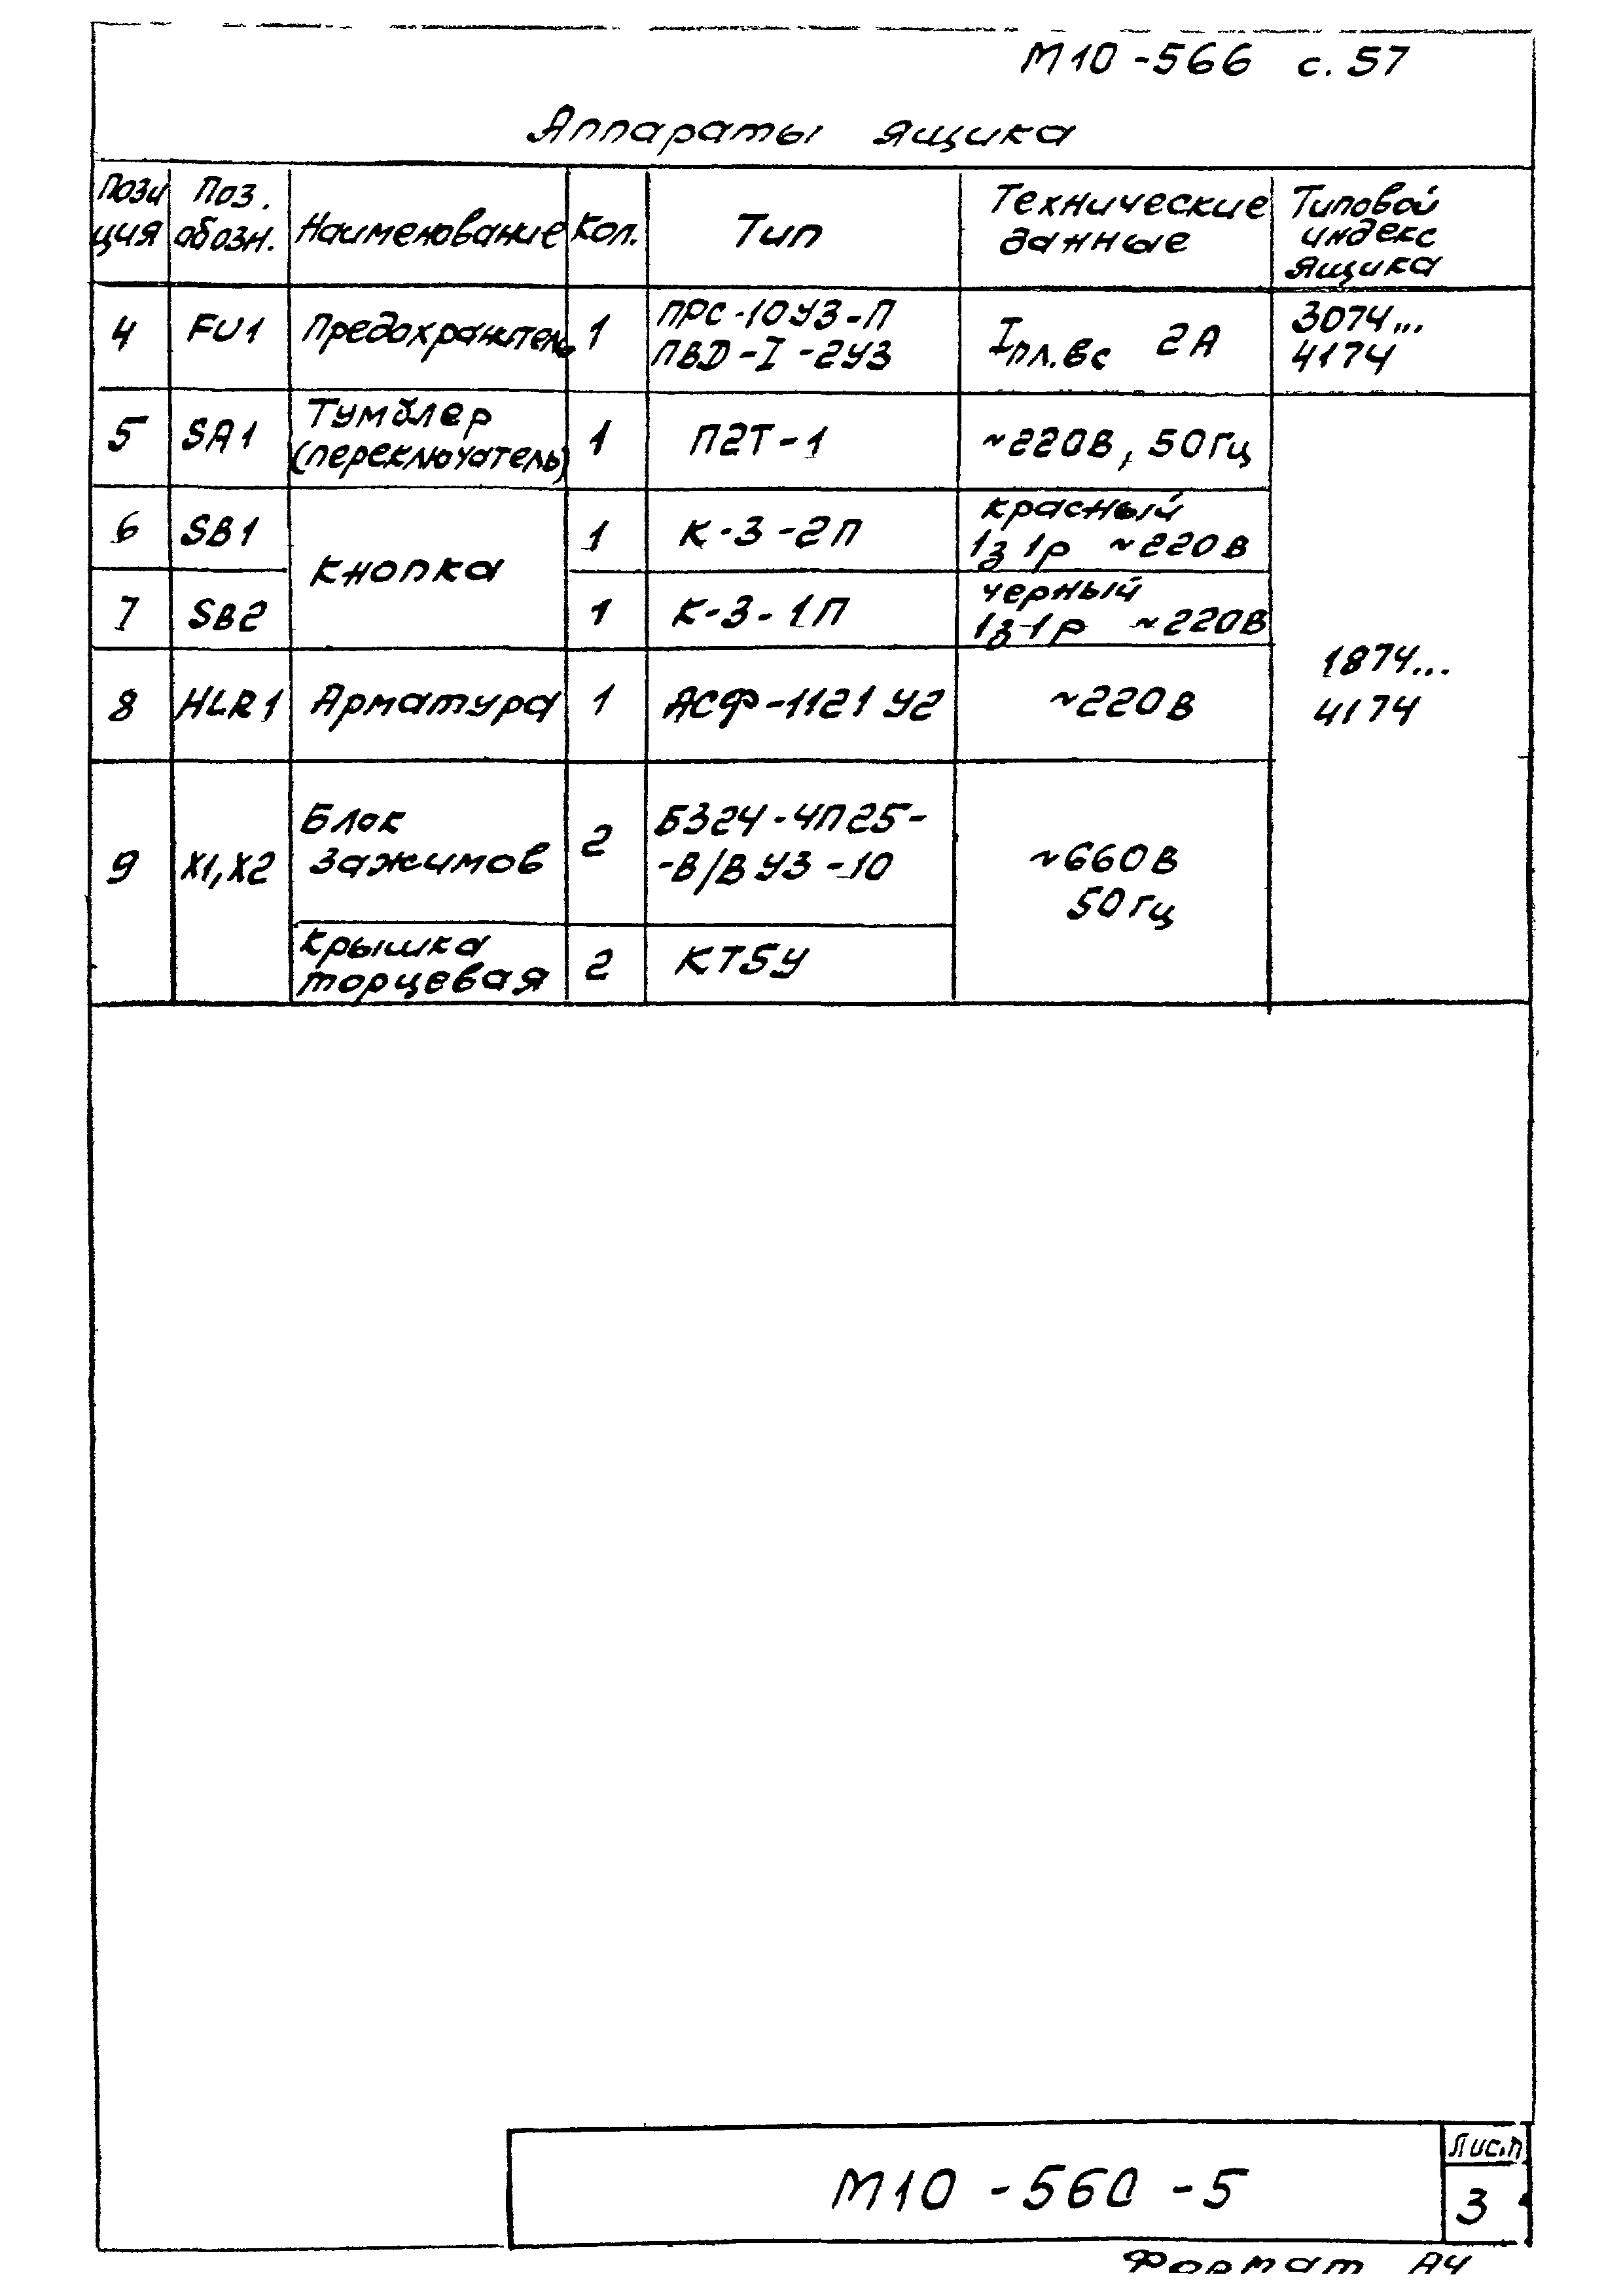 М10-566 с. 57
Аппараты ящика
Пози ция
Поз. обозн.
Наименование
Кол.
Тип
Технические данные
Типовой индекс ящика
4 FU1 Предохранитель 1 ПРС-10У3-П Iпл.вс 2А 3074...
ПВД-I-2У3 4174
5 SA1 Тумблер 1 П2Т-1 ~220В, 50Гц
(переключатель)
6 SB1 Кнопка 1 К-3-2П красный
1з 1р ~220В
7 SB2 1 К-3-1П черный
1з 1р ~220В
1874...
4174
8 HLR1 Арматура 1 АСФ-1121 У2 ~220В
9 Х1, Х2 Блок 2 Б324-4П25-
зажимов -В/ВУ3-10 ~660В
50Гц
Крышка 2 КТ5У
торцевая
М10-560-5
Лист
3
Формат А4